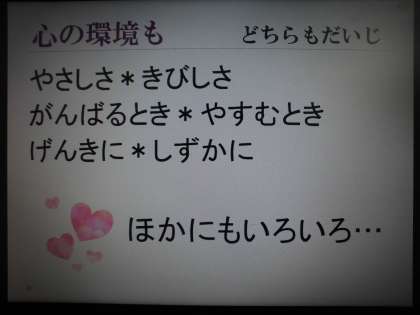 心の環境も　どちらもだいじ
やさしさ＊きびしさ
がんばるとき＊やすむとき
げんきに＊しずかに
ほかにもいろいろ…